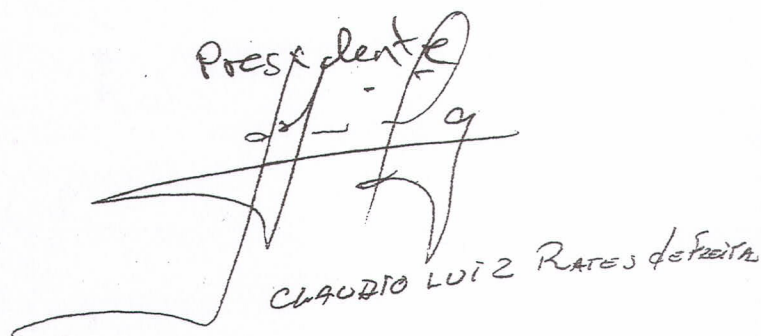 Presidente
CLAUDIO LUIZ RATES de FREITAS